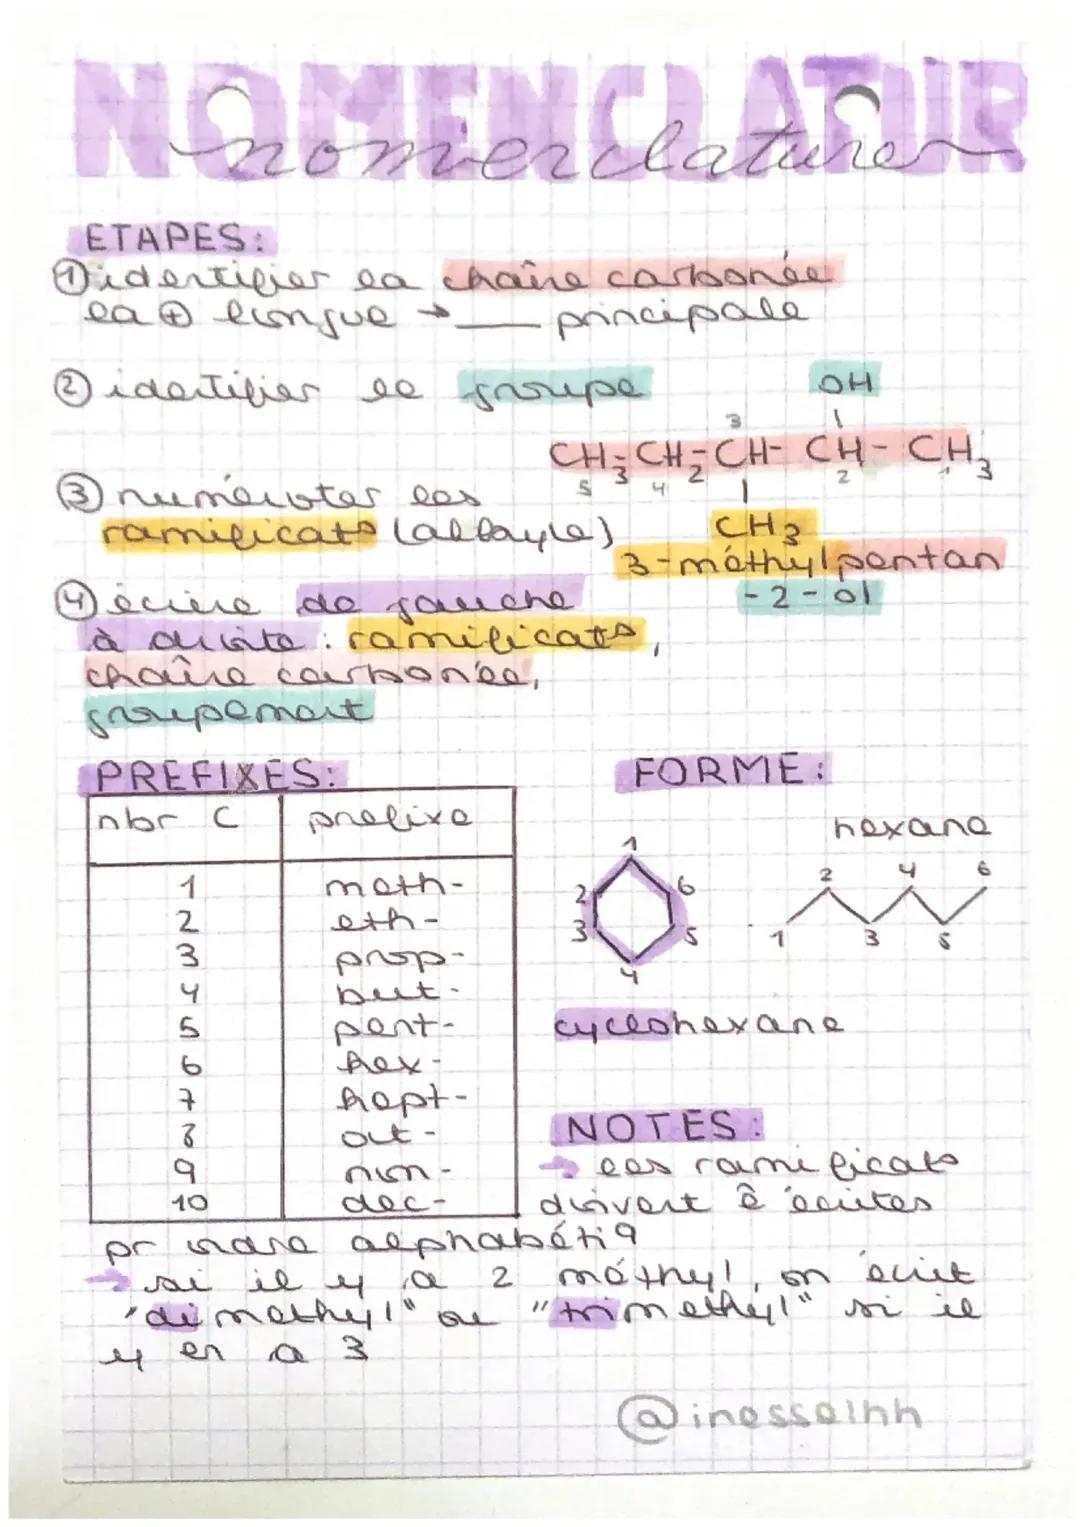 NOMENCLATUR
nomenclature
ETAPES:
① identifier la chaîne carbonée
la ⊕ longue → ___ principale
② identifier le groupe
OH
3
CH₃-CH₂-CH-CH-CH₃
5 4 2 1
③ numéroter les
ramificatº (alkayle)
CH₃
3-méthylpentan
-2-ol
④ écrire de gauche
à droite : ramificatº,
chaîne carbonée,
groupement
PREFIXES:
nbr C prefixe
1 meth-
2 eth-
3 prop-
4 but-
5 pent-
6 hex-
7 hept-
8 oct-
9 non-
10 dec-
FORME:
hexane
1
2 6
3 5
4
2 4 6
1 3 5
cyclohexane
NOTES:
→ les ramificatº
doivent ê écrites
pr ordre alphabétiq
→ si il y a 2 méthyl, on écrit
"dimethyl" ou "trimethyl" si il
y en a 3
@inesselnh